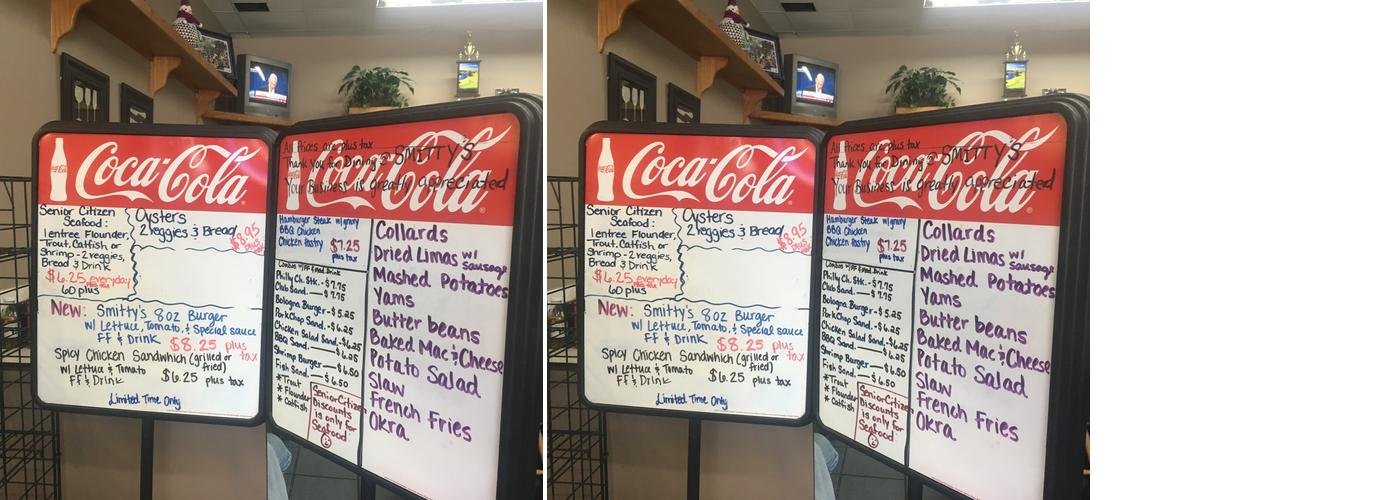 Coca-Cola
Senior Citizen
Seafood:
1 entree Flounder,
Trout, Catfish or
Shrimp - 2 veggies,
Bread & Drink
$6.25 everyday
plus tax
60 plus
Oysters
2 Veggies & Bread
$8.95
plus
tax
New: Smitty's 8oz Burger
w/ Lettuce, Tomato, & Special sauce
FF & Drink $8.25 plus tax
Spicy Chicken Sandwhich (grilled or fried)
w/ Lettuce & Tomato
FF & Drink $6.25 plus tax
Limited Time Only
Coca-Cola
All Prices are plus tax
Thank you for Dining @ SMITTY'S
Your Business is greatly appreciated
Hamburger Steak w/ gravy
BBQ Chicken
Chicken Pastry $7.25
plus tax
Combos w/ FF & Med. Drink
Philly Ch. Stk. - $7.75
Club Sand. - $7.75
Bologna Burger - $5.25
Pork Chop Sand. - $6.25
Chicken Salad Sand. - $6.25
BBQ Sand. - $6.25
Shrimp Burger - $6.50
Fish Sand. - $6.50
* Trout
* Flounder
* Catfish
Senior Citizen
Discounts
is only for
Seafood
Collards
Dried Limas w/ Sausage
Mashed Potatoes
Yams
Butter beans
Baked Mac & Cheese
Potato Salad
Slaw
French Fries
Okra
Coca-Cola
Senior Citizen
Seafood:
1 entree Flounder,
Trout, Catfish or
Shrimp - 2 veggies,
Bread & Drink
$6.25 everyday
plus tax
60 plus
Oysters
2 Veggies & Bread
$8.95
plus
tax
New: Smitty's 8oz Burger
w/ Lettuce, Tomato, & Special sauce
FF & Drink $8.25 plus tax
Spicy Chicken Sandwhich (grilled or fried)
w/ Lettuce & Tomato
FF & Drink $6.25 plus tax
Limited Time Only
Coca-Cola
All Prices are plus tax
Thank you for Dining @ SMITTY'S
Your Business is greatly appreciated
Hamburger Steak w/ gravy
BBQ Chicken
Chicken Pastry $7.25
plus tax
Combos w/ FF & Med. Drink
Philly Ch. Stk. - $7.75
Club Sand. - $7.75
Bologna Burger - $5.25
Pork Chop Sand. - $6.25
Chicken Salad Sand. - $6.25
BBQ Sand. - $6.25
Shrimp Burger - $6.50
Fish Sand. - $6.50
* Trout
* Flounder
* Catfish
Senior Citizen
Discounts
is only for
Seafood
Collards
Dried Limas w/ Sausage
Mashed Potatoes
Yams
Butter beans
Baked Mac & Cheese
Potato Salad
Slaw
French Fries
Okra